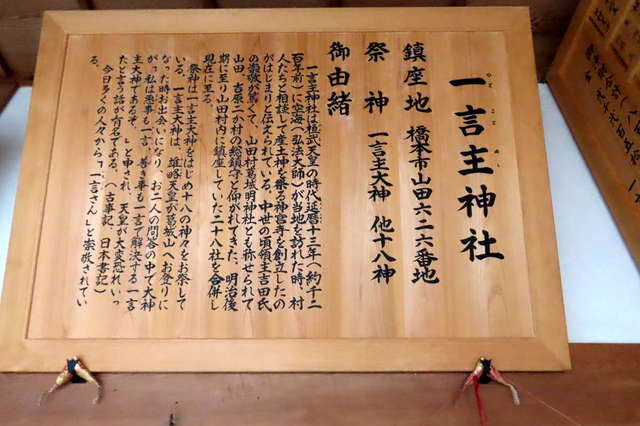 一言主神社
ひとことぬし
鎮座地 橋本市山田六二六番地
祭神 一言主大神 他十八神
御由緒
一言主神社は桓武天皇の時代延暦十三年(約千二
百年前)に空海(弘法大師)が当地を訪れた時、村
人たちと相談して産土神を祭る神宮寺を創立したの
がはじまりと伝えられている。中世の頃領主吉田氏
の崇敬が篤くて、山田村葛城明神社とも称せられて
山田、吉原二か村の総鎮守と仰がれてきた。明治後
期に至り山田村内に鎮座していた二十八社を合併し
現在に至る。
祭神は一言主大神をはじめ十八の神々をお祭して
いる。一言主大神は、雄略天皇が葛城山へお登りに
なった時お出会いになり、お二人の問答の中で大神
が、私は悪事も一言、善き事も一言で解決する一言
主大神であるぞ。」と申され、天皇が大変恐れいっ
たと言う話が有名である。(古事記、日本書記)
今日多くの人々から「一言さん」と崇敬されてい
る。